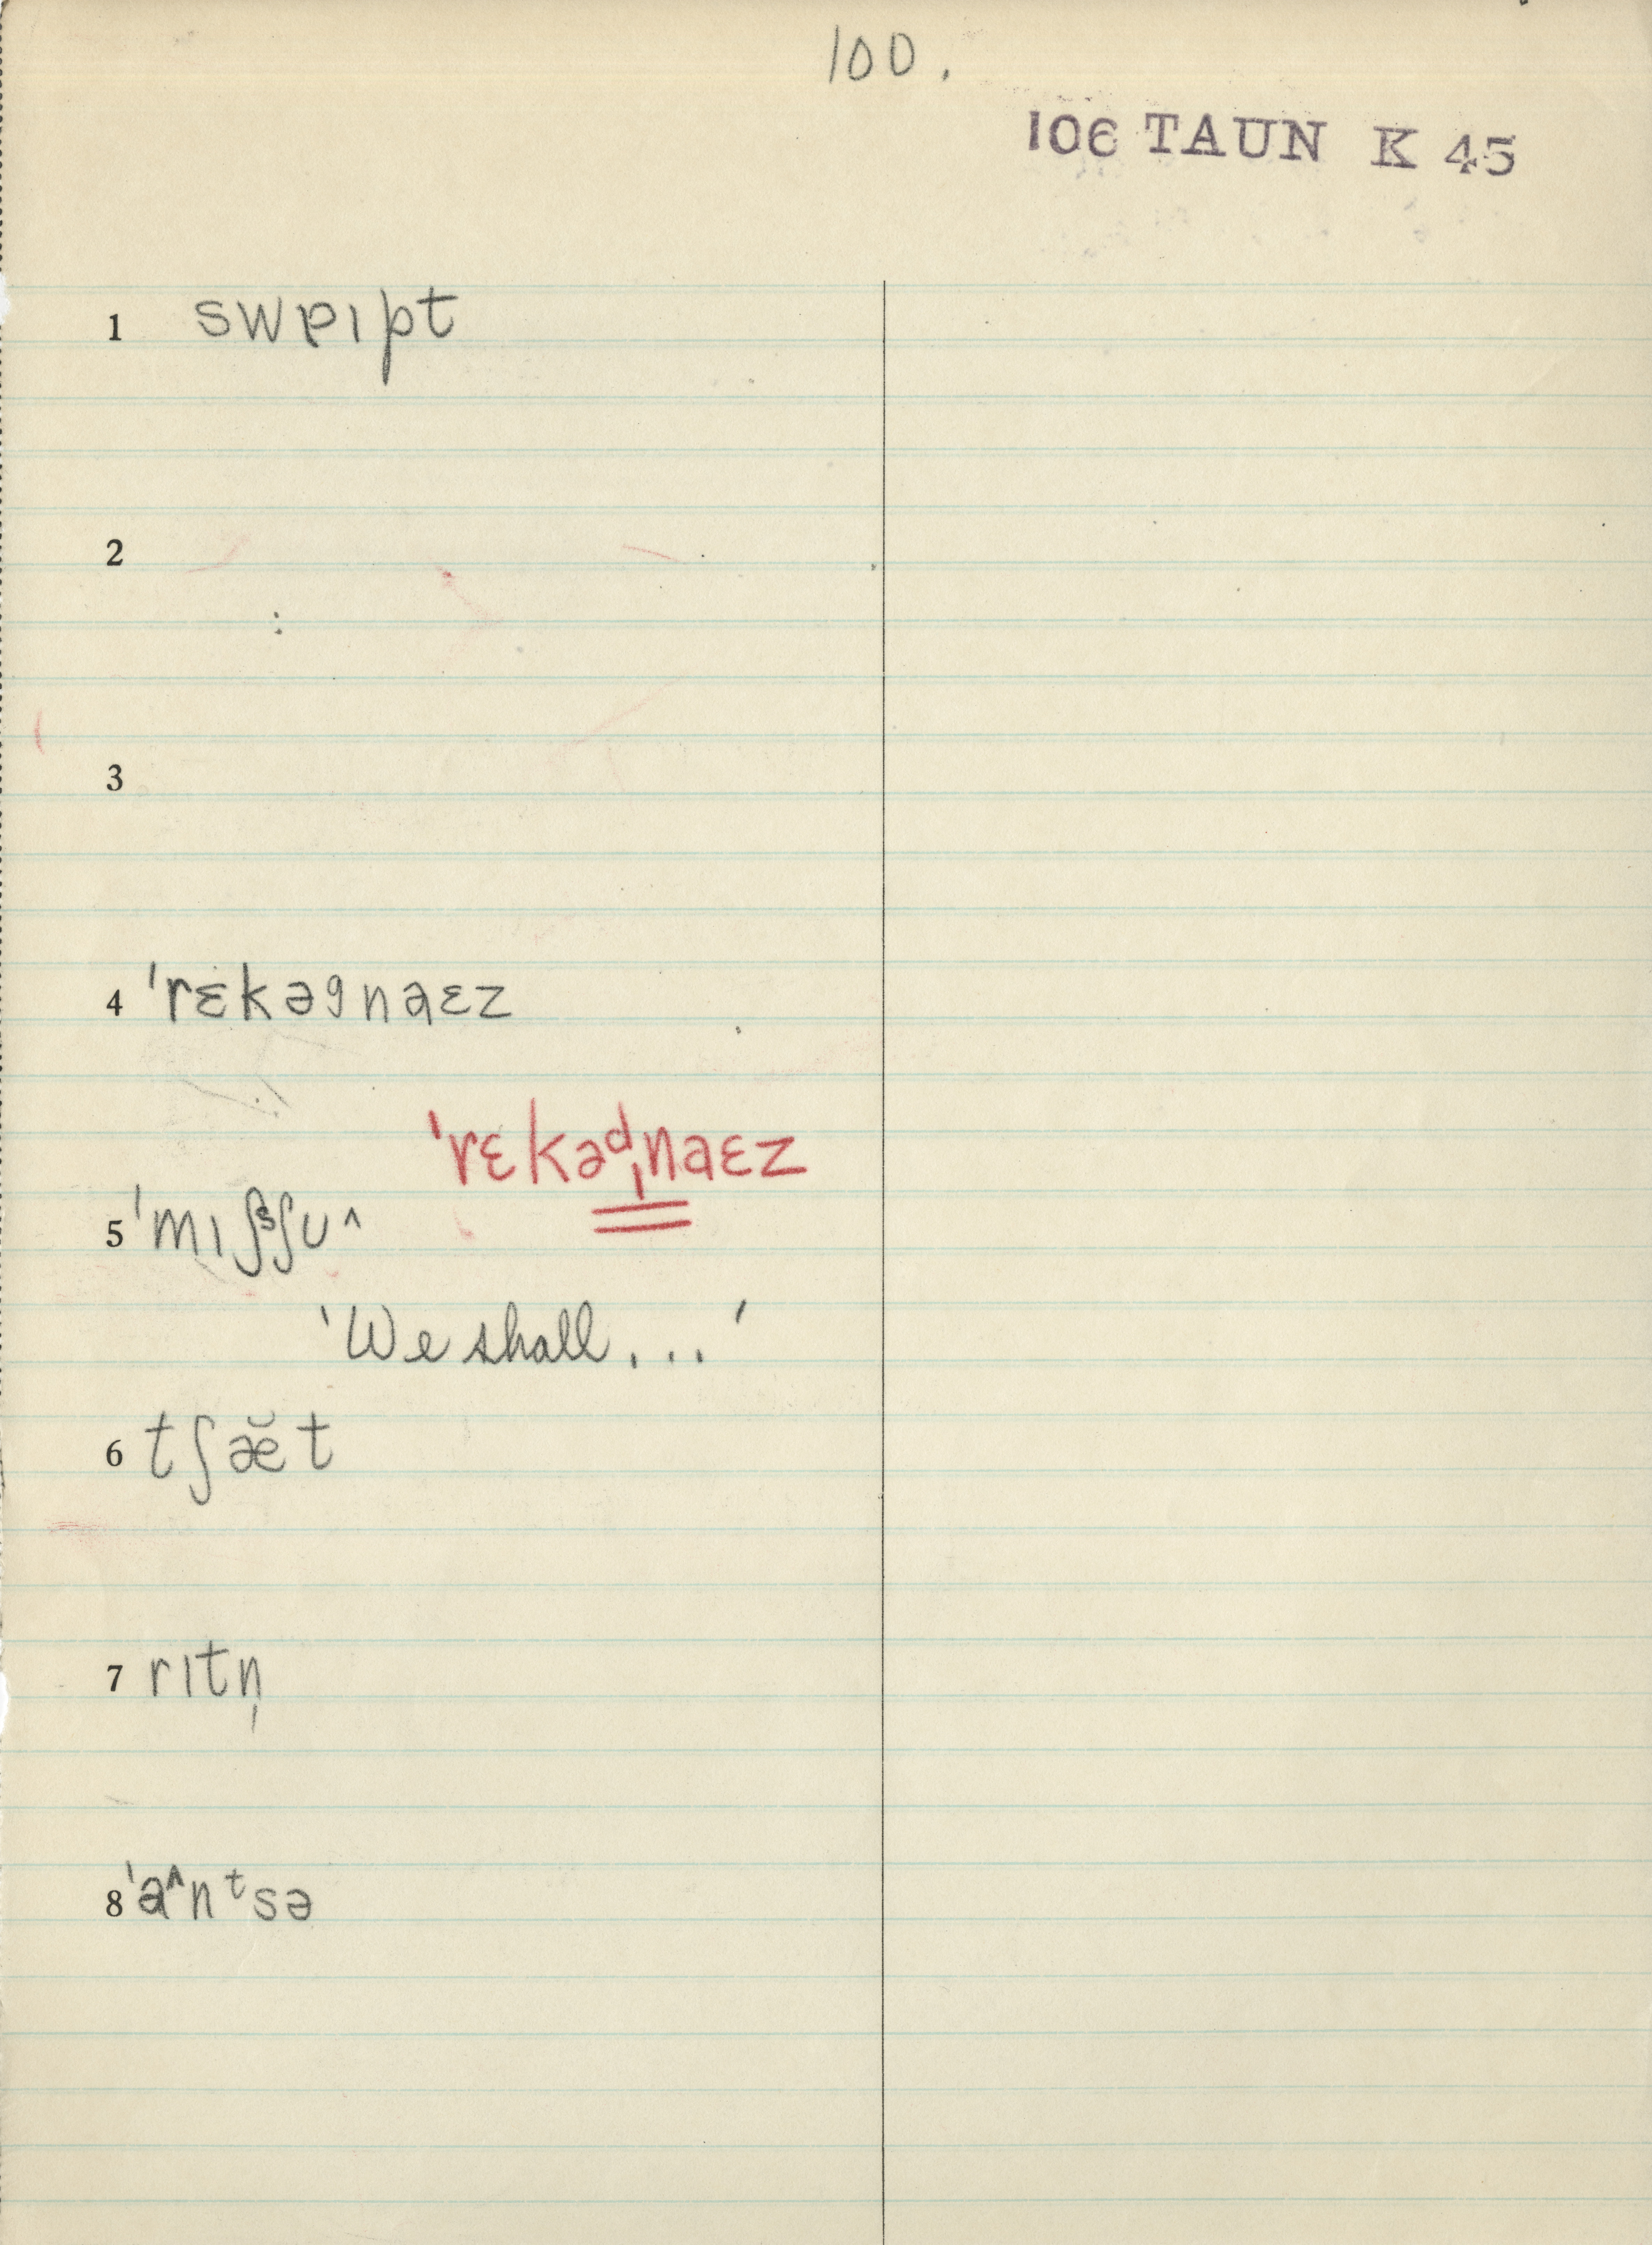 100.
106 TAUN K 45
1 swɐɪpt
2
3
4 ˈrɛkəgnaɛz
ˈrɛkəᵈ̩naɛz
5 ˈmɪʃˢʃʊ^
'We shall...'
6 tʃæ̆t
7 rɪtn̩
8 ˈa^nᵗsə